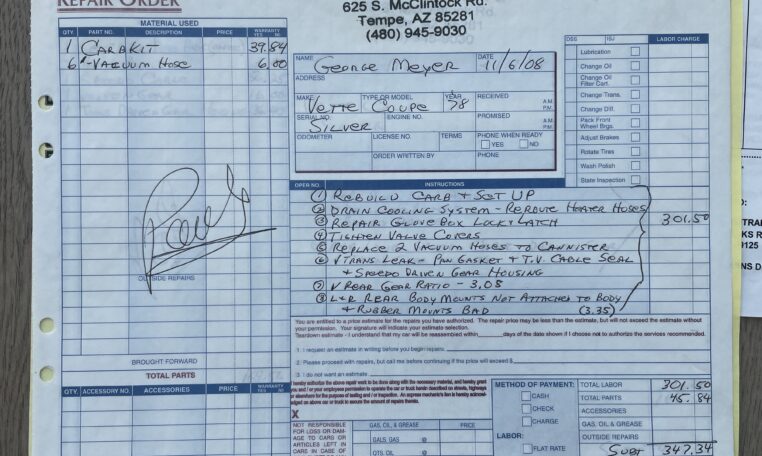 REPAIR ORDER
625 S. McClintock Rd.
Tempe, AZ 85281
(480) 945-9030
MATERIAL USED
QTY. PART NO. DESCRIPTION PRICE WARRANTY YES NO
1 CARB KIT 39.84
6'- VACUUM HOSE 6.00
NAME George Meyer DATE 11/6/08
ADDRESS
MAKE Vette TYPE OR MODEL Coupe YEAR 78 RECEIVED A.M. P.M.
SERIAL NO. SILVER ENGINE NO. PROMISED A.M. P.M.
ODOMETER LICENSE NO. TERMS PHONE WHEN READY
YES NO
ORDER WRITTEN BY PHONE
LABOR CHARGE
Lubrication
Change Oil
Change Oil Filter Cart.
Change Trans.
Change Diff.
Pack Front Wheel Brgs.
Adjust Brakes
Rotate Tires
Wash Polish
State Inspection
OPER NO. INSTRUCTIONS
1 REBUILD CARB & SET UP
2 DRAIN COOLING SYSTEM - REROUTE HEATER HOSES
3 REPAIR GLOVE BOX LOCK & LATCH 301.50
4 TIGHTEN VALVE COVERS
5 REPLACE 2 VACUUM HOSES TO CANNISTER
6 √ TRANS LEAK - PAN GASKET & T.V. CABLE SEAL
& SPEEDO DRIVEN GEAR HOUSING
7 √ REAR GEAR RATIO - 3.08
8 L&R REAR BODY MOUNTS NOT ATTACHED TO BODY
& RUBBER MOUNTS BAD (3.35)
OUTSIDE REPAIRS
You are entitled to a price estimate for the repairs you have authorized. The repair price may be less than the estimate, but will not exceed the estimate
without your permission. Your signature will indicate your estimate selection.
Teardown estimate - I understand that my car will be reassembled within days of the date shown if I choose not to authorize the services recommended.
1. I request an estimate in writing before you begin repairs.
2. Please proceed with repairs, but call me before continuing if the price will exceed $
3. I do not want an estimate.
BROUGHT FORWARD
TOTAL PARTS
QTY. ACCESSORY NO. ACCESSORIES PRICE WARRANTY YES NO
X
NOT RESPONSIBLE
FOR LOSS OR DAM-
AGE TO CARS OR
ARTICLES LEFT IN
CARS IN CASE OF
GAS, OIL & GREASE PRICE
GALS. GAS @
QTS. OIL @
METHOD OF PAYMENT:
CASH
CHECK
CHARGE
LABOR:
FLAT RATE
TOTAL LABOR 301.50
TOTAL PARTS 45.84
ACCESSORIES
GAS, OIL & GREASE
OUTSIDE REPAIRS
SUBT 347.34